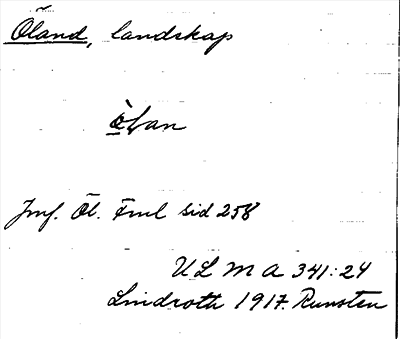 Öland, landskap
Jmf. Öl. Fml sid 258
ULMA 341:24
Lindroth 1917. Runsten